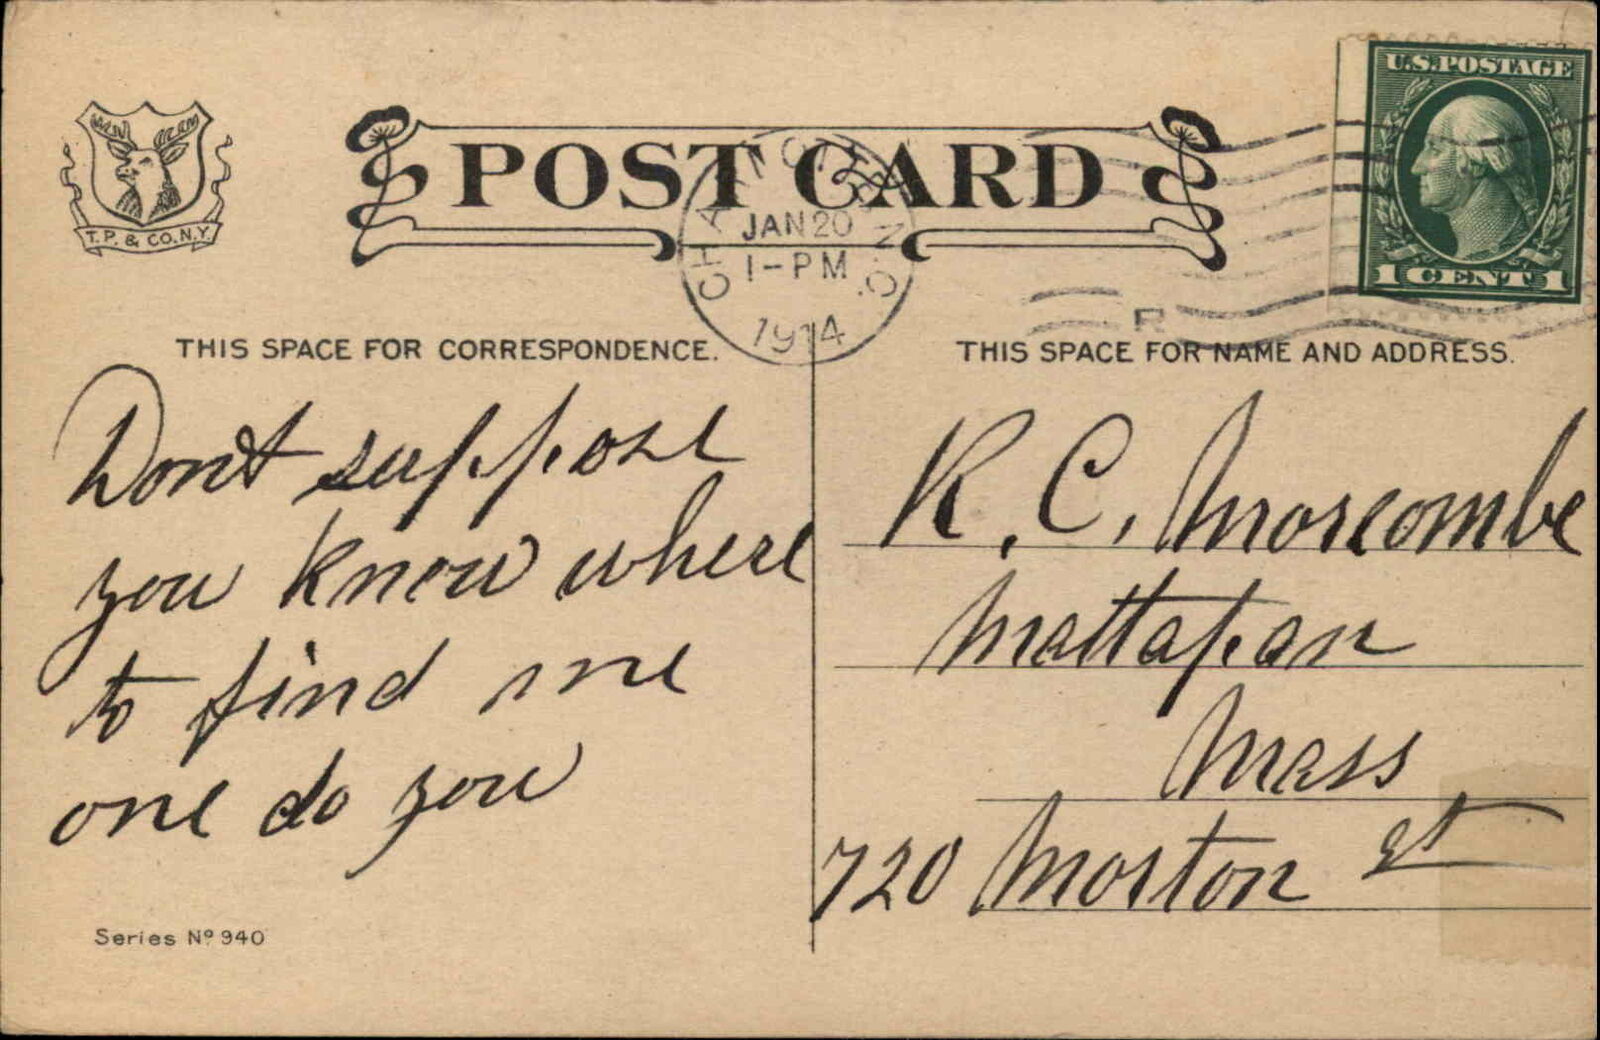 POST CARD
T.P. & CO. N.Y.
CHARLOTTE N.C.
JAN 20
1-PM
1914
R
U.S. POSTAGE
1 CENT 1
THIS SPACE FOR CORRESPONDENCE.
Dont suppose
you know where
to find me
one do you
Series Nº 940
THIS SPACE FOR NAME AND ADDRESS.
R. C. Morcombe
Mattapan
Mass
720 Morton St